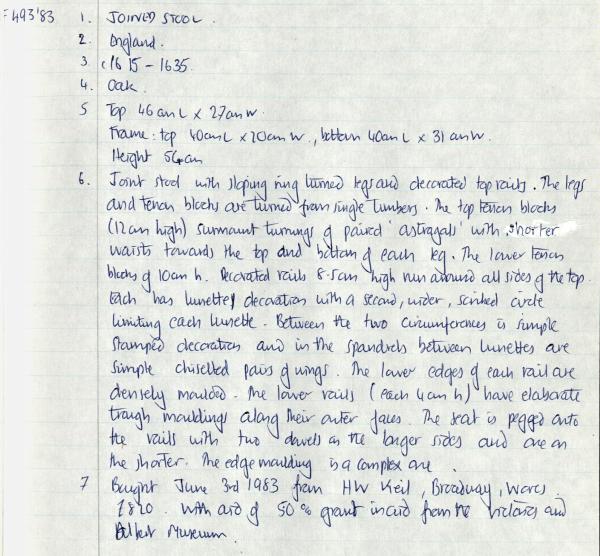 F493'83 1. JOINED STOOL.
2. England.
3 c1615-1635.
4. Oak.
5 Top 46cm L x 27cm W.
Frame: top 40cm L x 20cm W., bottom 40cm L x 31cm W.
Height 54cm
6. Joint stool with sloping ring turned legs and decorated top rails. The legs
and tenon blocks are turned from single timbers. The top tenon blocks
(12cm high) surmount turnings of paired 'astragals' with shorter
waists towards the top and bottom of each leg. The lower tenon
blocks of 10cm h. Decorated rails 8.5cm high run around all sides of the top.
Each has lunette decoration with a second, wider, scribed circle
limiting each lunette. Between the two circumferences is simple
stamped decoration and in the spandrels between lunettes are
simple chiselled pairs of wings. The lower edges of each rail are
densely moulded. The lower rails (each 4cm h) have elaborate
trough mouldings along their outer faces. The seat is pegged onto
the rails with two dowels on the longer sides and one on
the shorter. The edge moulding is a complex one.
7 Bought June 3rd 1983 from HW Keil, Broadway, Worcs
£820. With aid of 50% grant in aid from the Victoria and
Albert Museum.